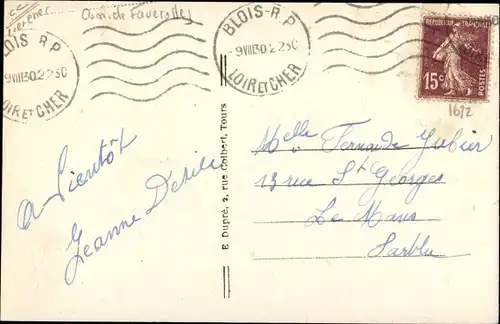 Com. de Faverolles
BLOIS R.P
9 VIII 30 2 230
LOIR ET CHER
BLOIS - R.P
9 VIII 30 2 230
LOIR ET CHER
REPUBLIQUE FRANÇAISE
15c
POSTES
1612
A bientôt
Jeanne
E Dupré, 2, rue Colbert, Tours
Melle Fernande Jubier
13 rue St Georges
Le Mans
Sarthe